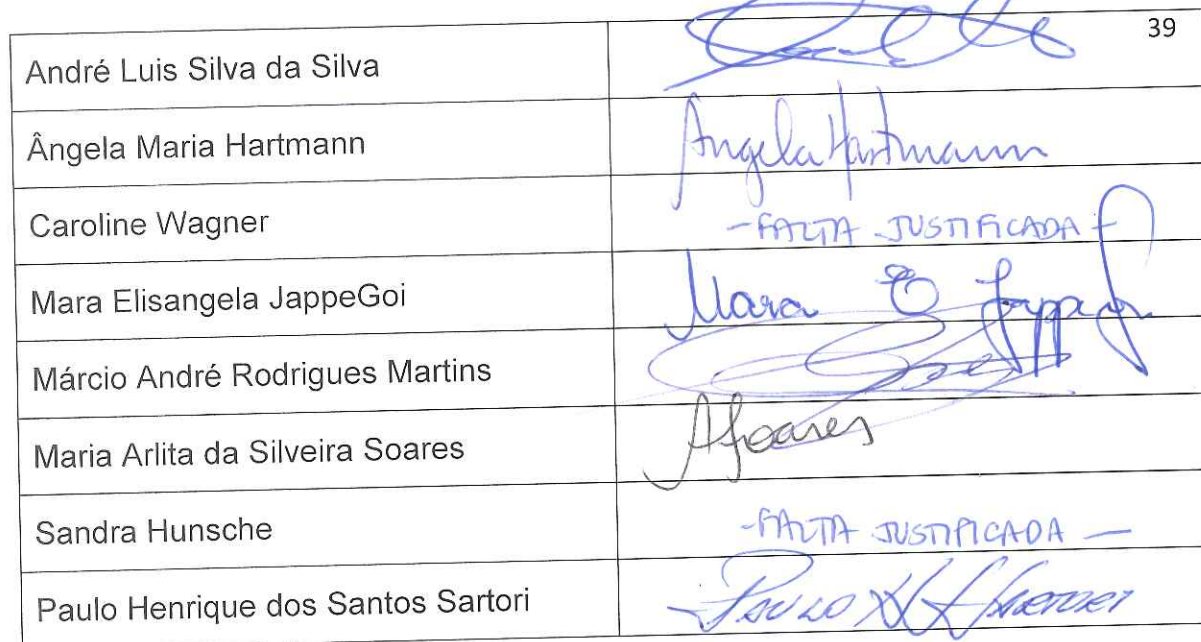 39
André Luis Silva da Silva
Ângela Maria Hartmann Angela Hartmann
Caroline Wagner -FALTA JUSTIFICADA-
Mara Elisangela JappeGoi Mara E Jappe
Márcio André Rodrigues Martins
Maria Arlita da Silveira Soares ASoares
Sandra Hunsche -FALTA JUSTIFICADA-
Paulo Henrique dos Santos Sartori Paulo H S Sartori